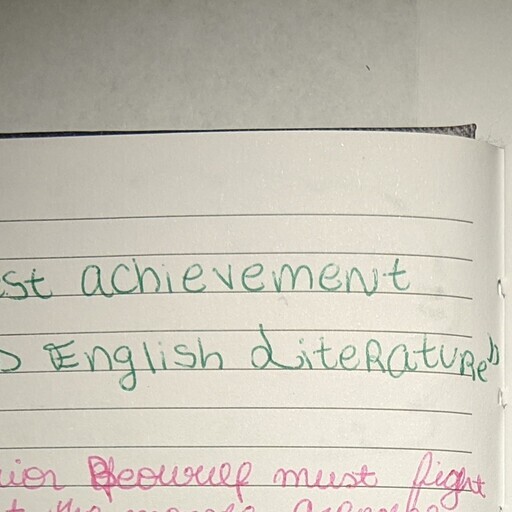 st achievement
English Literature"
ior Beowulf must fight